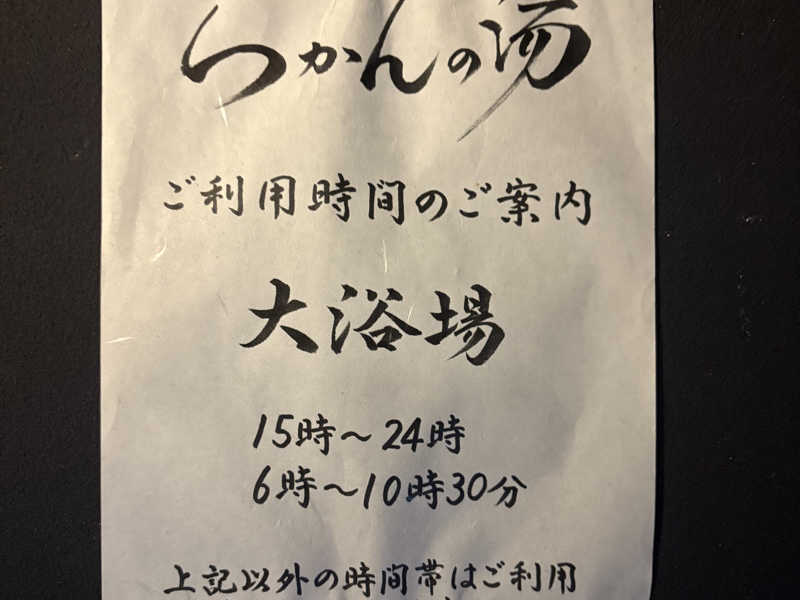 らかんの湯
ご利用時間のご案内
大浴場
15時～24時
6時～10時30分
上記以外の時間帯はご利用